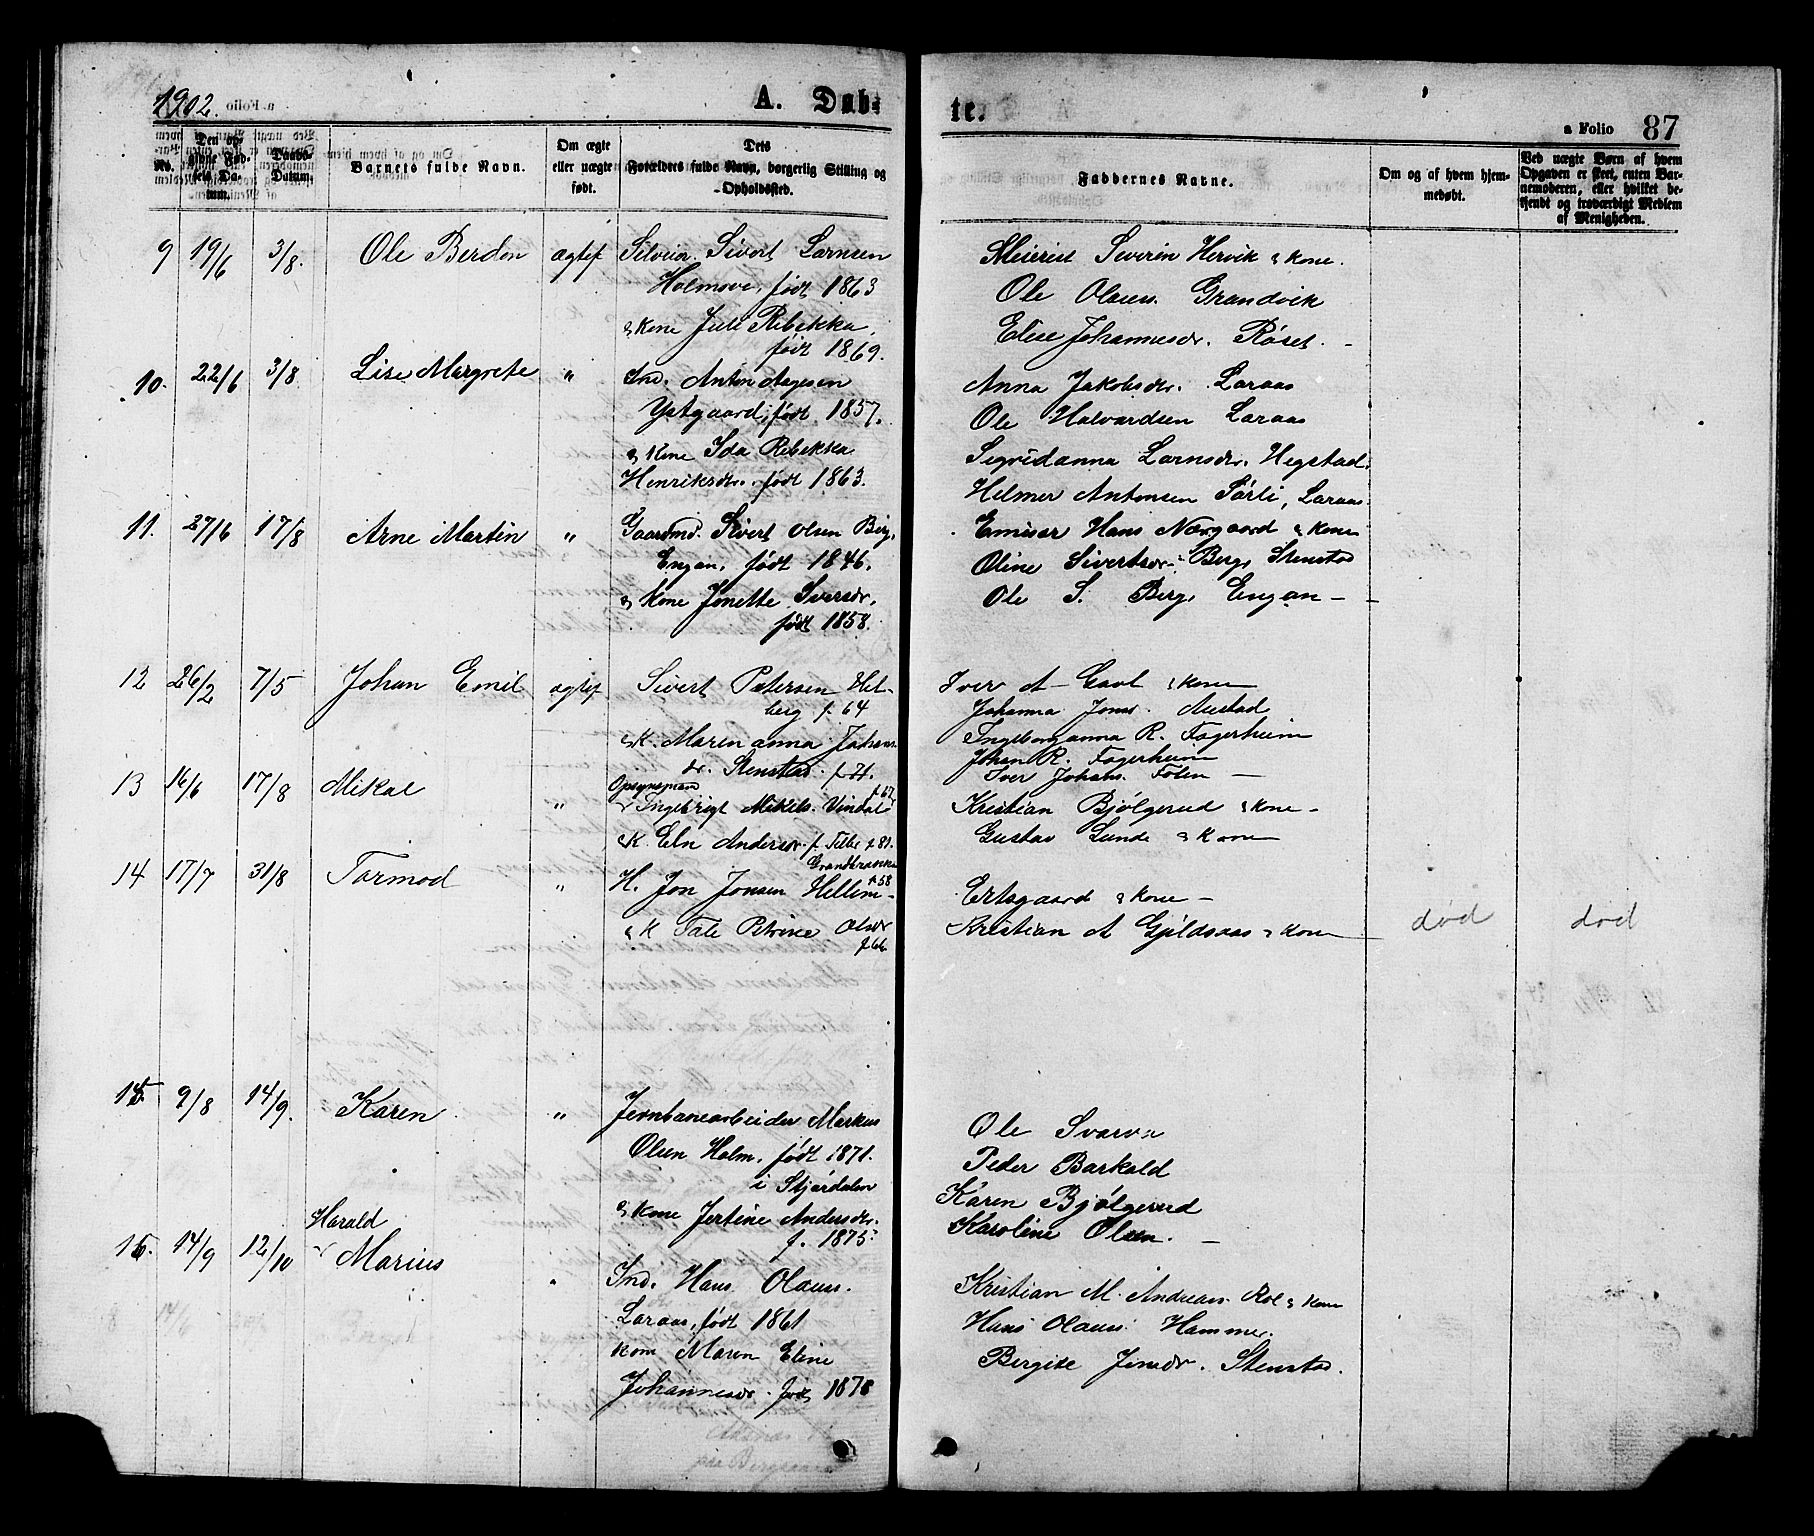 1902. a Folio
A. Døb-
te.
a Folio 87
No.
Den op-
givne Fød-
sels Da-
tum.
Daabs-
Datum.
Barnets fulde Navn.
Om ægte
eller uægte
født.
Dets
Forældres fulde Navn, borgerlig Stilling og
Opholdssted.
Faddernes Navne.
Om og af hvem hjem-
medøbt.
Ved uægte Børn af hvem
Opgaven er skeet, enten Bar-
nemoderen, eller hvilket be-
kjendt og troværdigt Medlem
af Menigheden.
9 19/6 3/8. Ole Berdon ægtef Sivert Larnsen
Holmove, født 1863
& Kone Juli Rebekka,
født 1869.
Meierist Severin Hervik & Kone.
Ole Olauss. Grandvik
Elise Johannesdr. Røset. -
10. 22/6 3/8 Lise Margrete " Ind. Anton Aagesen
Ystgaard, født 1857.
& Kone Ida Rebekka
Henriksdr. født 1863.
Anna Jakobsdr. Laraas
Ole Halvardsen Laraas
Segridanna Larnsdr. Hegstad.
Hilmer Antonsen Sørli, Laraas.
11. 27/6 17/8 Arne Martin " Gaardmd. Sivert Olsen Berg,
Engan, født 1846.
& Kone Jonette Iversdr,
født 1858.
Emissær Hans Nørgaard & Kone
Oline Sivertsdr. Berg, Stenstad
Ole S. Berg, Engan - -
12 26/2 7/5 Johan Emil ægtef Sivert Petersen Het-
berg f. 64
& K. Maren anna Johans
dr. Stenstad. f. 71.
Iver A Gavl & Kone
Johanna Jons. Mustad
Ingeborganna R. Fagerheim
Johan R. Fagerheim
Iver Johans. Følen -
13 16/6 17/8 Mikal " Opsynsmand f. 67
Ingebrigt Mikels. Vindal
& K. Eln Andersdr. f. Tiller f 81.
Kristian Bjølgerud & Kone -
Gustav Lunde & Kone
14 17/7 31/8 Tormod " Grandbrække
H. Jon Jonsen Hellem - f. 58
& K Tale Petrine Olsdr
f. 66
Ertsgaard & Kone -
Kristian A Gjeldsaas & Kone død død
15 9/8 14/9. Karen " Jernbanearbeider Markus
Olsen Holm, født 1871.
i Stjørdalen
& Kone Jertine Andersdr.
f. 1875.
Ole Svarva
Peder Barkald
Karen Bjølgerud
Karoline Olsen. -
16. 14/9 12/10 Harald
Marius " Ind. Hans Olauss.
Laraas, født 1861
Kone Maren Eline
Johannesdr. født 1878
Kristian M. Andreas. Rol & Kone
Hans Olauss. Hammer.
Bergite Jonsdr. Stenstad.